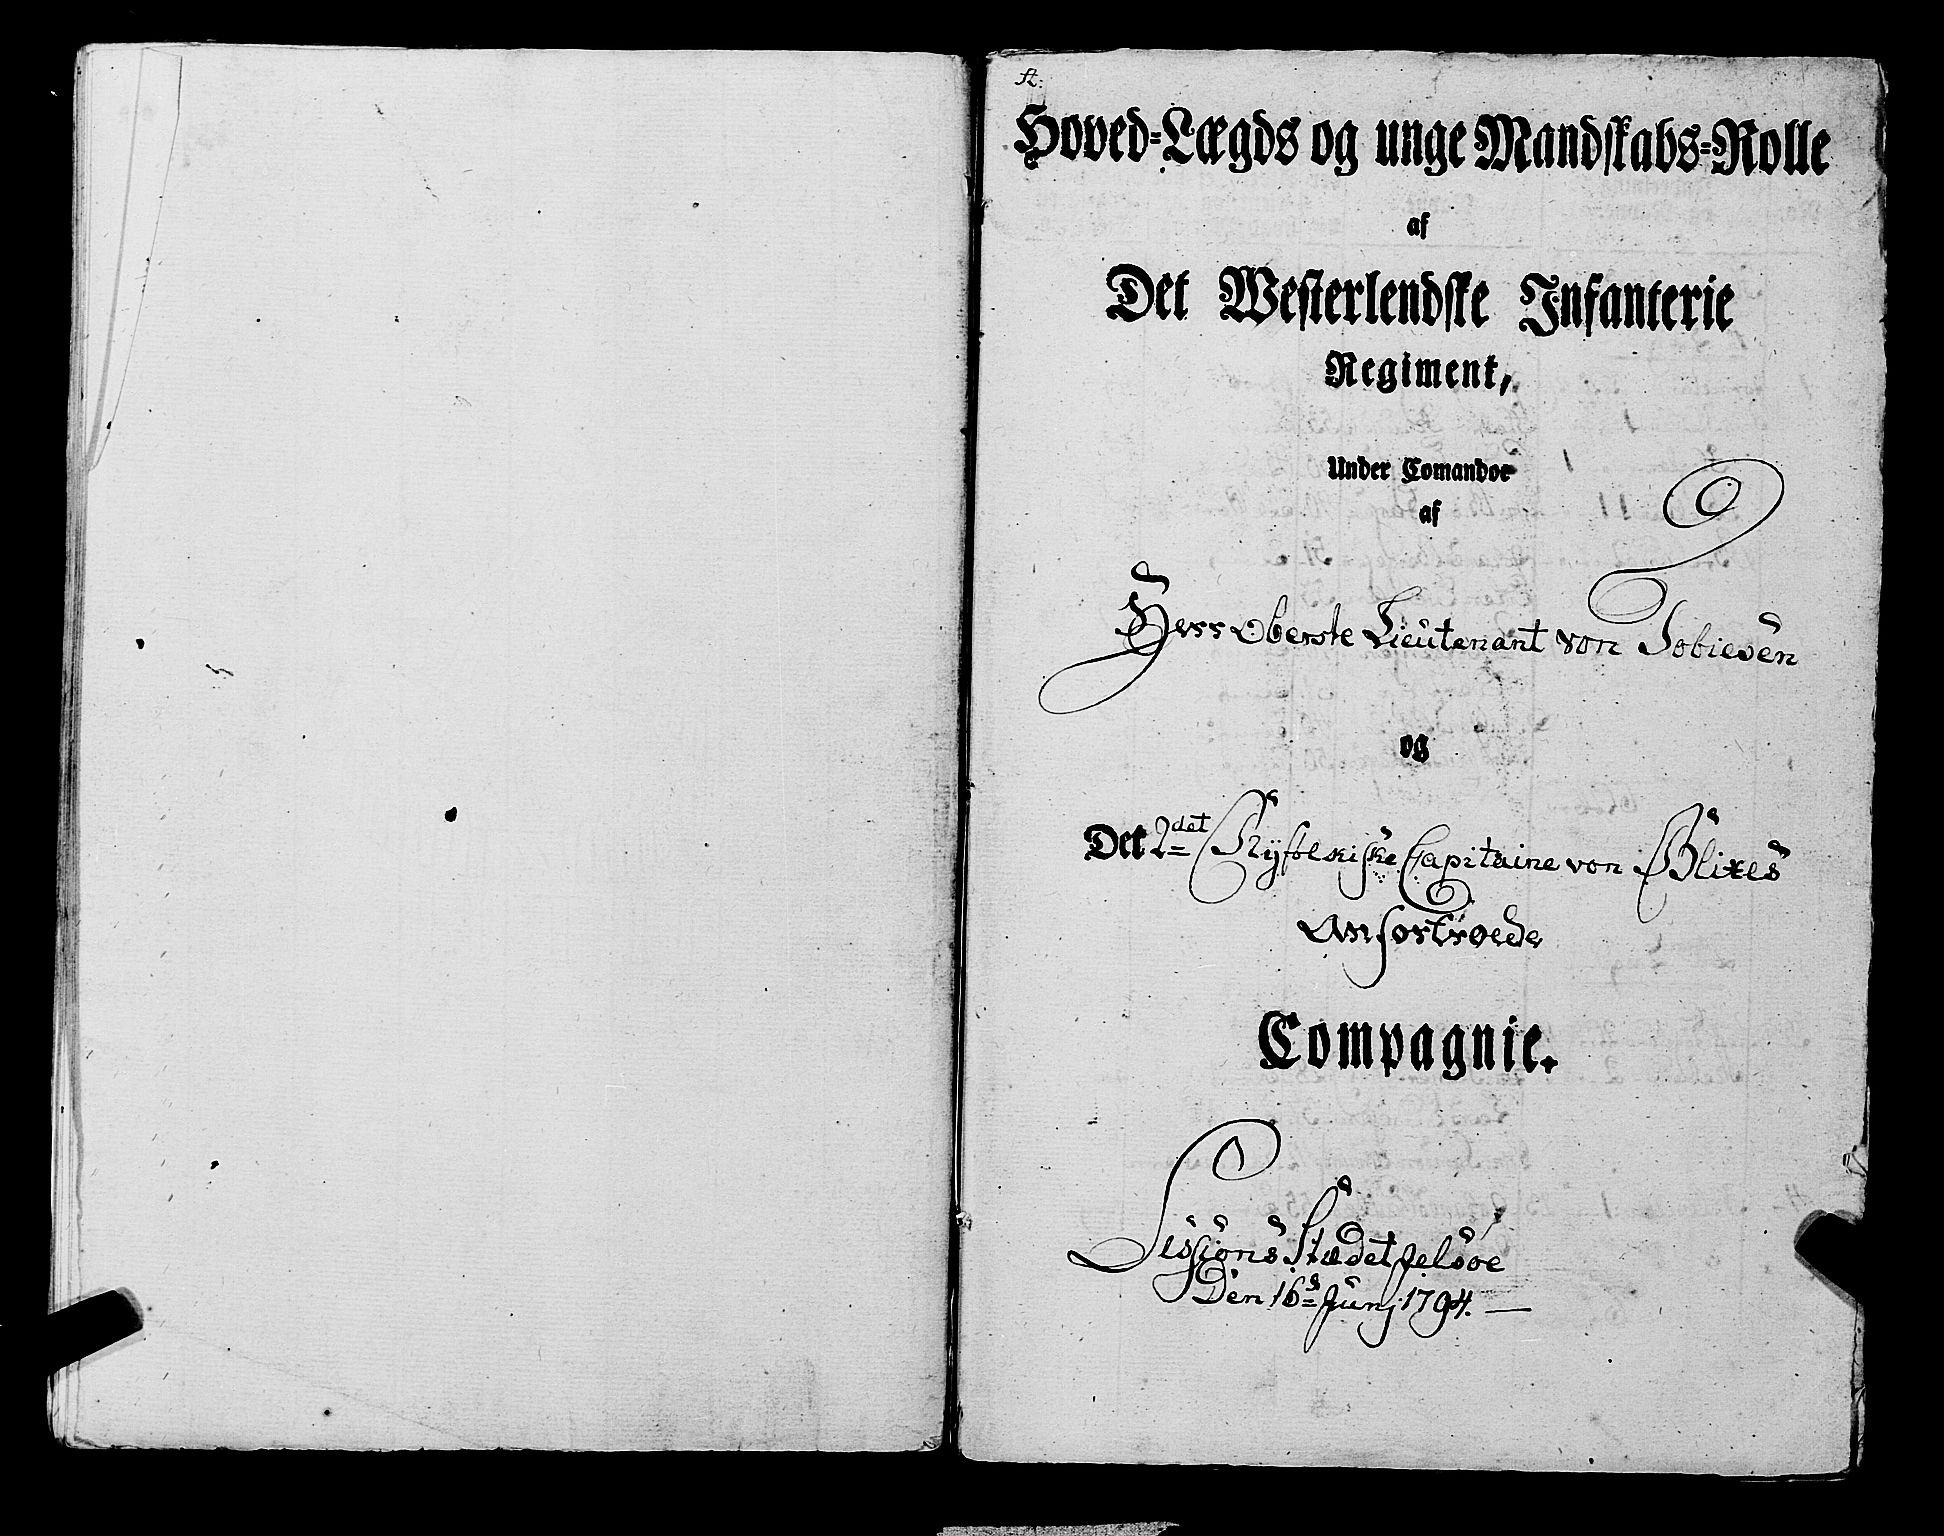 A.
Hoved-Lægds og unge Mandskabs-Rolle
af
Det Westerlendske Infanterie
Regiment,
Under Comandoe
af
Herr Oberste Lieutenant von Tobiesen
og
Det 2det Ryfølkiske Capitaine von Blixes
Anfortroede
Compagnie.
Sessions Stædet Jelsøe
Den 16s Junj 1794.